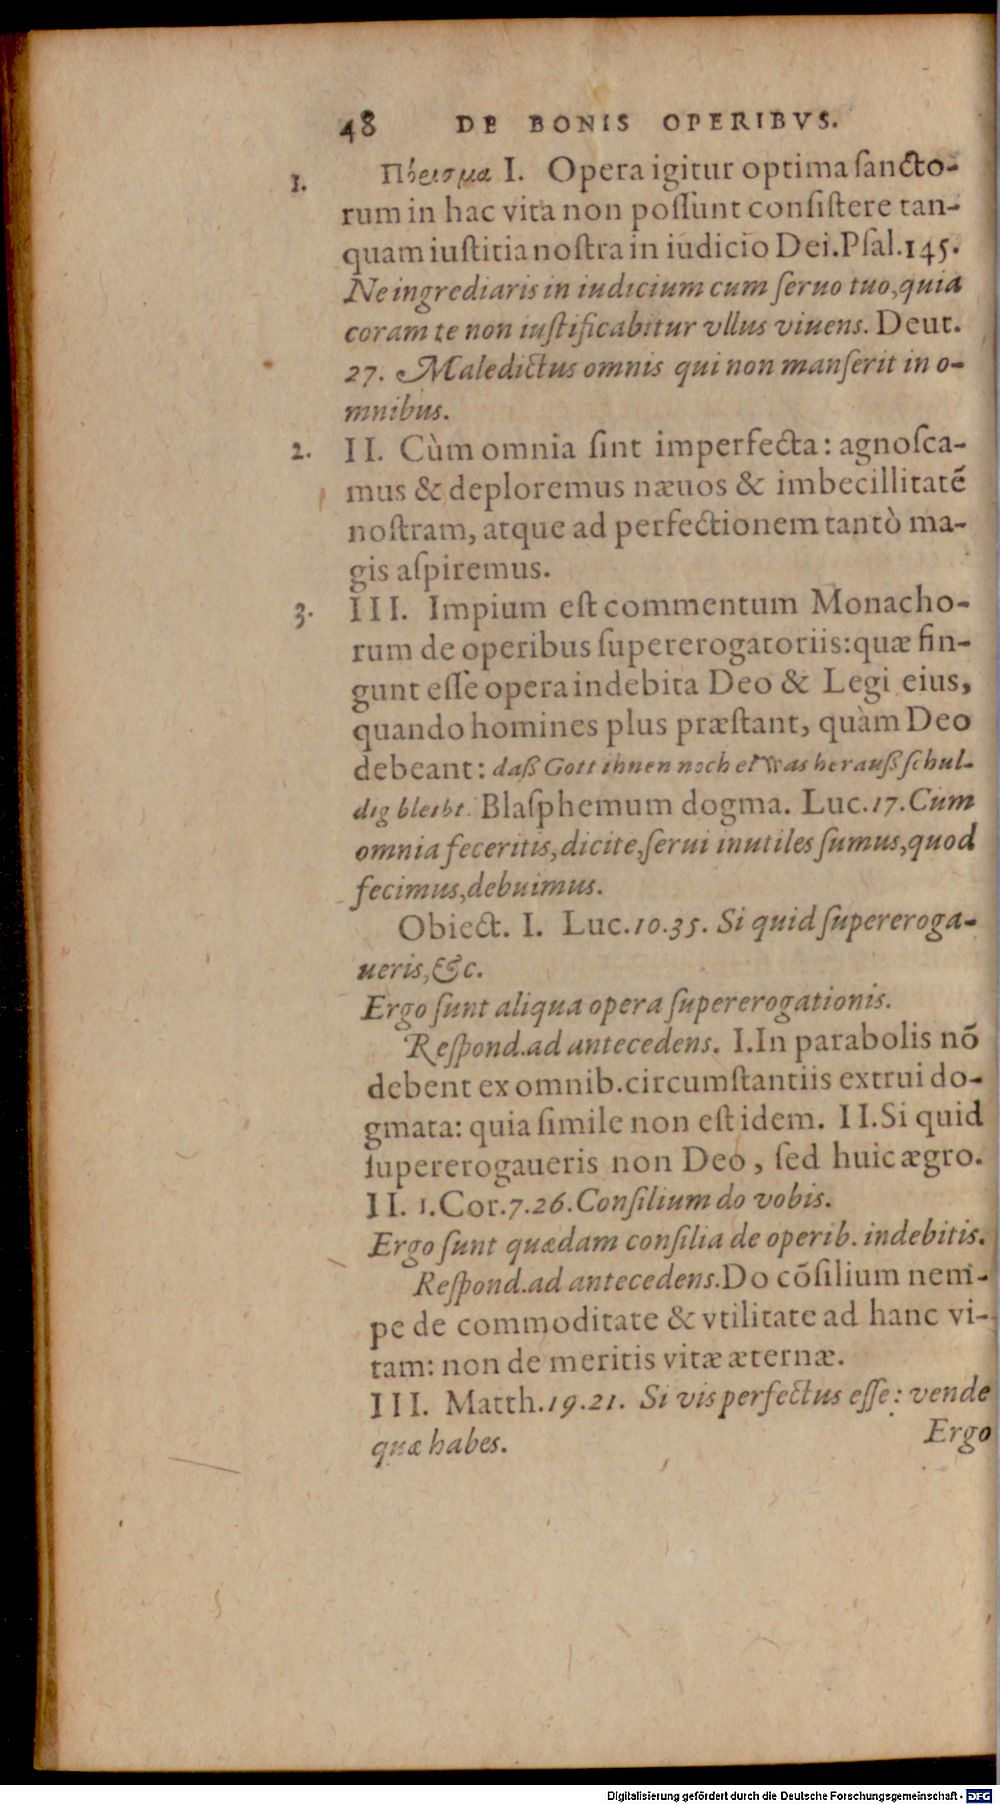 48 DE BONIS OPERIBVS.
1. Πόρισμα I. Opera igitur optima sancto-
rum in hac vita non possunt consistere tan-
quam iustitia nostra in iudicio Dei. Psal. 145.
Ne ingrediaris in iudicium cum seruo tuo, quia
coram te non iustificabitur vllus viuens. Deut.
27. Maledictus omnis qui non manserit in o-
mnibus.
2. II. Cùm omnia sint imperfecta: agnosca-
mus & deploremus næuos & imbecillitatẽ
nostram, atque ad perfectionem tantò ma-
gis aspiremus.
3. III. Impium est commentum Monacho-
rum de operibus supererogatoriis: quæ fin-
gunt esse opera indebita Deo & Legi eius,
quando homines plus præstant, quàm Deo
debeant: daß Gott ihnen noch etwas herauß schul-
dig bleibt. Blasphemum dogma. Luc. 17. Cum
omnia feceritis, dicite, serui inutiles sumus, quod
fecimus, debuimus.
Obiect. I. Luc. 10. 35. Si quid supereroga-
ueris, &c.
Ergo sunt aliqua opera supererogationis.
Respond. ad antecedens. I. In parabolis nõ
debent ex omnib. circumstantiis extrui do-
gmata: quia simile non est idem. II. Si quid
supererogaueris non Deo, sed huic ægro.
II. 1. Cor. 7. 26. Consilium do vobis.
Ergo sunt quædam consilia de operib. indebitis.
Respond. ad antecedens. Do cõsilium nem-
pe de commoditate & vtilitate ad hanc vi-
tam: non de meritis vitæ æternæ.
III. Matth. 19. 21. Si vis perfectus esse: vende
quæ habes.
Ergo
Digitalisierung gefördert durch die Deutsche Forschungsgemeinschaft - DFG